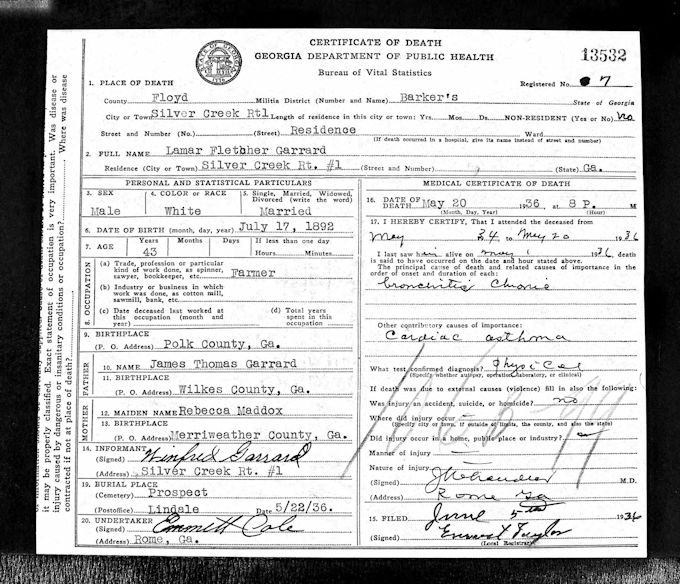 CERTIFICATE OF DEATH
GEORGIA DEPARTMENT OF PUBLIC HEALTH
Bureau of Vital Statistics
13532
Registered No. 7
1. PLACE OF DEATH
County Floyd Militia District (Number and Name) Barker's State of Georgia
City or Town Silver Creek Rt1 Length of residence in this city or town: Yrs. Mos. Ds. NON-RESIDENT (Yes or No) no
Street and Number (No.) (Street) Residence Ward
(If death occurred in a hospital, give its name instead of street and number)
2. FULL NAME Lamar Fletcher Garrard
Residence (City or Town) Silver Creek Rt. #1 (Street and Number) (State) Ga.
PERSONAL AND STATISTICAL PARTICULARS
3. SEX
Male
4. COLOR OR RACE
White
5. Single, Married, Widowed, Divorced (write the word)
Married
6. DATE OF BIRTH (month, day, year) July 17, 1892
7. AGE Years Months Days If less than one day
43 Hours Minutes
8. OCCUPATION
(a) Trade, profession or particular kind of work done, as spinner, sawyer, bookkeeper, etc. Farmer
(b) Industry or business in which work was done, as cotton mill, sawmill, bank, etc.
(c) Date deceased last worked at this occupation (month and year)
(d) Total years spent in this occupation
9. BIRTHPLACE
(P. O. Address) Polk County, Ga.
FATHER
10. NAME James Thomas Garrard
11. BIRTHPLACE
(P. O. Address) Wilkes County, Ga.
MOTHER
12. MAIDEN NAME Rebecca Maddox
13. BIRTHPLACE
(P. O. Address) Merriweather County, Ga.
14. INFORMANT
(Signed) Winfred Garrard
(Address) Silver Creek Rt. #1
19. BURIAL PLACE
(Cemetery) Prospect
(Postoffice) Lindale Date 5/22/36.
20. UNDERTAKER
(Signed) Emmett Cole
(Address) Rome, Ga.
MEDICAL CERTIFICATE OF DEATH
16. DATE OF DEATH May 20 1936 at 8 P. M
(Month, Day, Year) (Hour)
17. I HEREBY CERTIFY, That I attended the deceased from
May 34 to May 20 1936
I last saw him alive on May 1936, death
is said to have occurred on the date and hour stated above.
The principal cause of death and related causes of importance in order of onset and duration of each:
Bronchitis Chronic
Other contributory causes of importance:
Cardiac asthma
What test confirmed diagnosis? Physical
(Specify whether autopsy, operation, laboratory, or clinical)
If death was due to external causes (violence) fill in also the following:
Was injury an accident, suicide, or homicide? no
Where did injury occur
(Specify city or town, if outside of limits, the county, and also the state)
Did injury occur in a home, public place or industry?
Manner of injury
Nature of injury
(Signed) M.D.
(Address) Rome Ga
15. FILED June 5 1936
(Signed) Ernest Taylor
(Local Registrar)
it may be properly classified. Exact statement of occupation is very important. Was disease or
injury caused by dangerous or insanitary conditions or occupation? Where was disease
contracted if not at place of death?